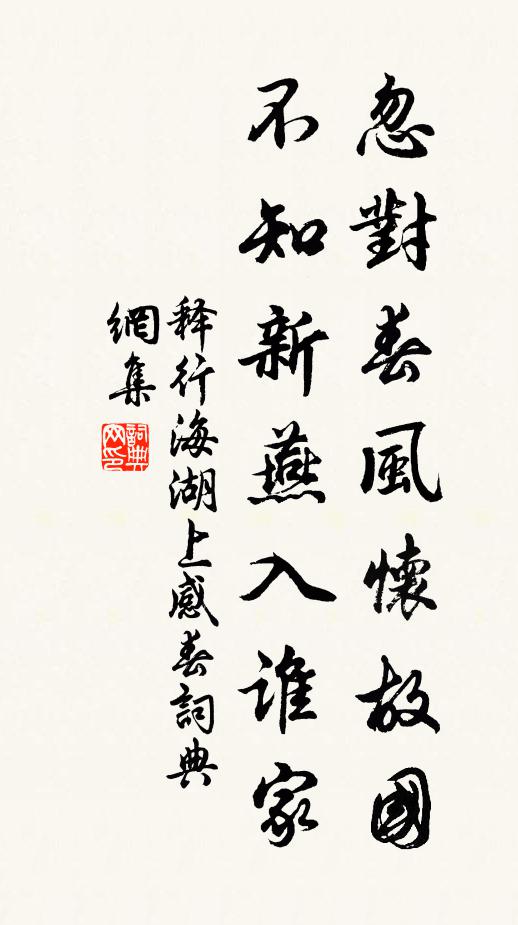 忽對春風懷故國
不知新燕入誰家
释行海湖上感春詞典
網集
詞典网印